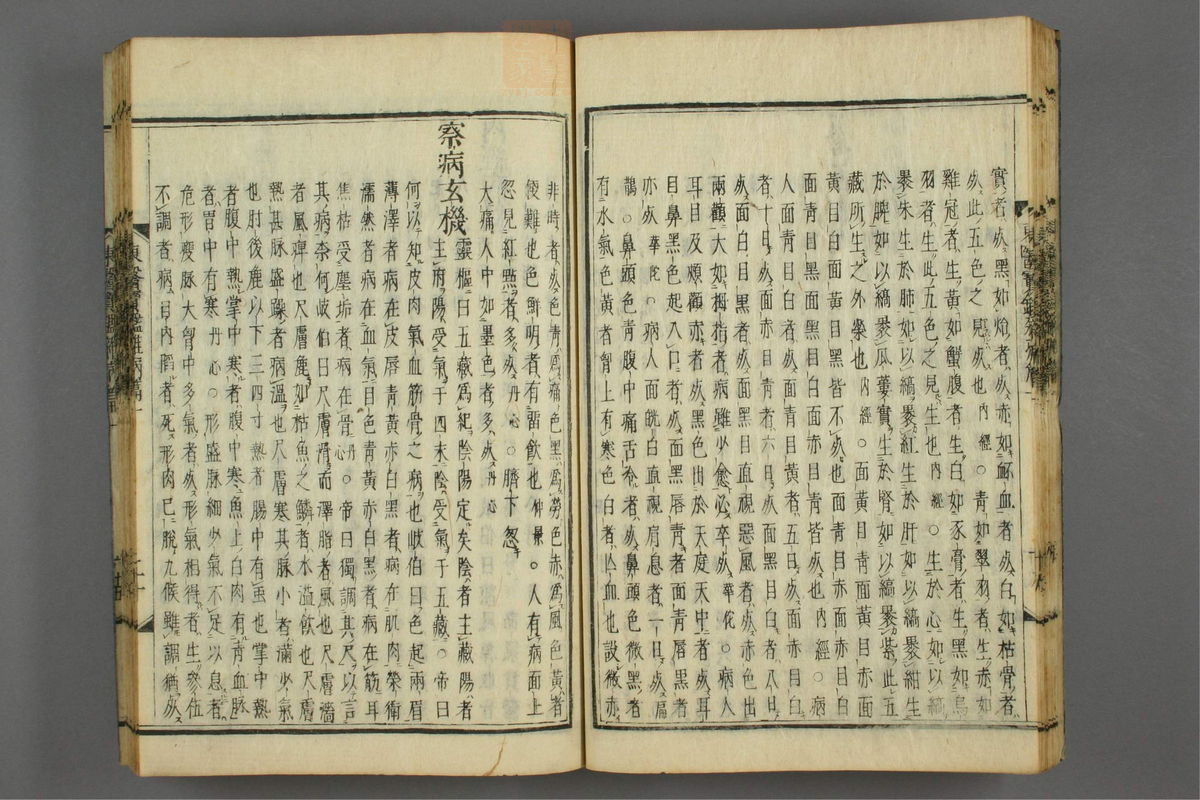 實者死黑如炲者死赤如衃血者死白如枯骨者
死此五色之見死也內經○青如翠羽者生赤如
雞冠者生黃如蟹腹者生白如豕膏者生黑如烏
羽者生此五色之見生也內經○生於心如以縞
褁朱生於肺如以縞褁紅生於肝如以縞褁紺生
於脾如以縞褁瓜蔞實生於腎如以縞褁紫此五
藏所生之外榮也內經○面黃目青面黃目赤面
黃目白面黃目黑皆不死也面青目赤面赤目白
面青目黑面黑目白面赤目青皆死也內經○病
人面青目白者死面青目黃者五日死面赤目白
者十日死面赤目青者六日死面黑目白者八日
死面白目黑者死面黑目直視惡風者死赤色出
兩顴大如拇指者病雖少愈必卒死華佗○病人
耳目及顴頰赤者死黑色出於天庭天中者死耳
目鼻黑色起入口者死面黑唇青者面青唇黑者
亦死華佗○病人面䏚白直視肩息者一日死扁
鵲○鼻頭色青腹中痛舌冷者死鼻頭色微黑者
有水氣色黃者胷上有寒色白者亾血也設微赤
非時者死色青爲痛色黑爲勞色赤爲風色黃者
便難也色鮮明者有留飮也仲景○人有病面上
忽見紅點者多死丹心○臍下忽
大痛人中如墨色者多死丹心
察病玄機
靈樞曰五藏爲紀陰陽定矣陰者主藏陽者
主府陽受氣于四末陰受氣于五藏○帝曰
何以知皮肉氣血筋骨之病也岐伯曰色起兩眉
薄澤者病在皮唇青黃赤白黑者病在肌肉榮衛
濡然者病在血氣目色青黃赤白黑者病在筋耳
焦枯受塵垢者病在骨丹心○帝曰獨調其尺以言
其病奈何岐伯曰尺膚滑而澤脂者風也尺膚濇
者風痺也尺膚麁如枯魚之鱗者水溢飮也尺膚
熱甚脉盛躁者病溫也尺膚寒其脉小者滿少氣
也肘後麁以下三四寸熱者腸中有虫也掌中熱
者腹中熱掌中寒者腹中寒魚上白肉有青血脉
者胃中有寒丹心○形盛脉細少氣不足以息者
危形瘦脉大胷中多氣者死形氣相得者生參伍
不調者病目內䧟者死形肉已脫九候雖調猶死